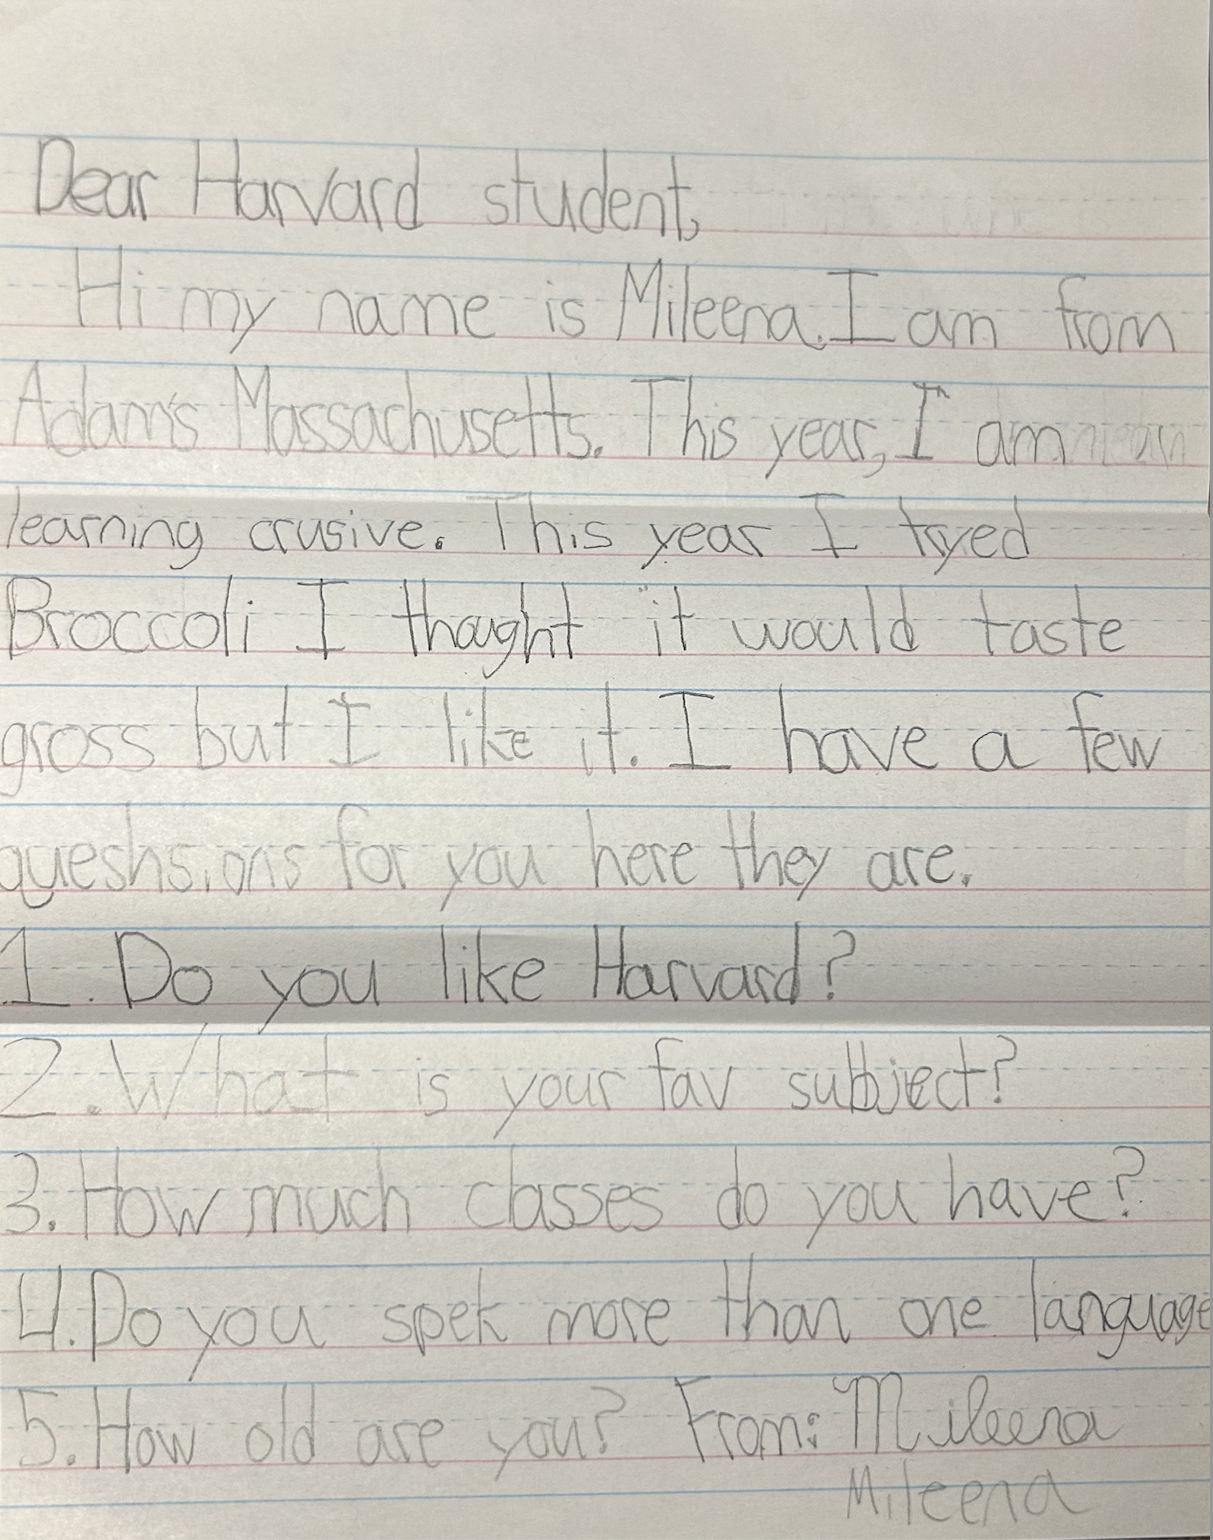 Dear Harvard student,
Hi my name is Mileena. I am from
Adam's Massachusetts. This year, I am
learning crusive. This year I tryed
Broccoli I thought it would taste
gross but I like it. I have a few
queshsions for you here they are.
1. Do you like Harvard?
2. What is your fav subbject?
3. How much classes do you have?
4. Do you spek more than one language
5. How old are you? From: Mileena
Mileena